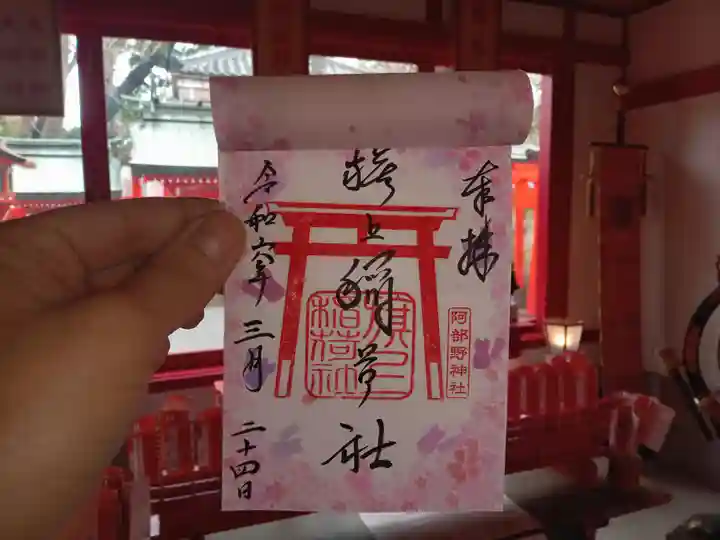 奉拝
旗上稲荷社
旗上稲荷社
阿部野神社
令和六年三月二十四日